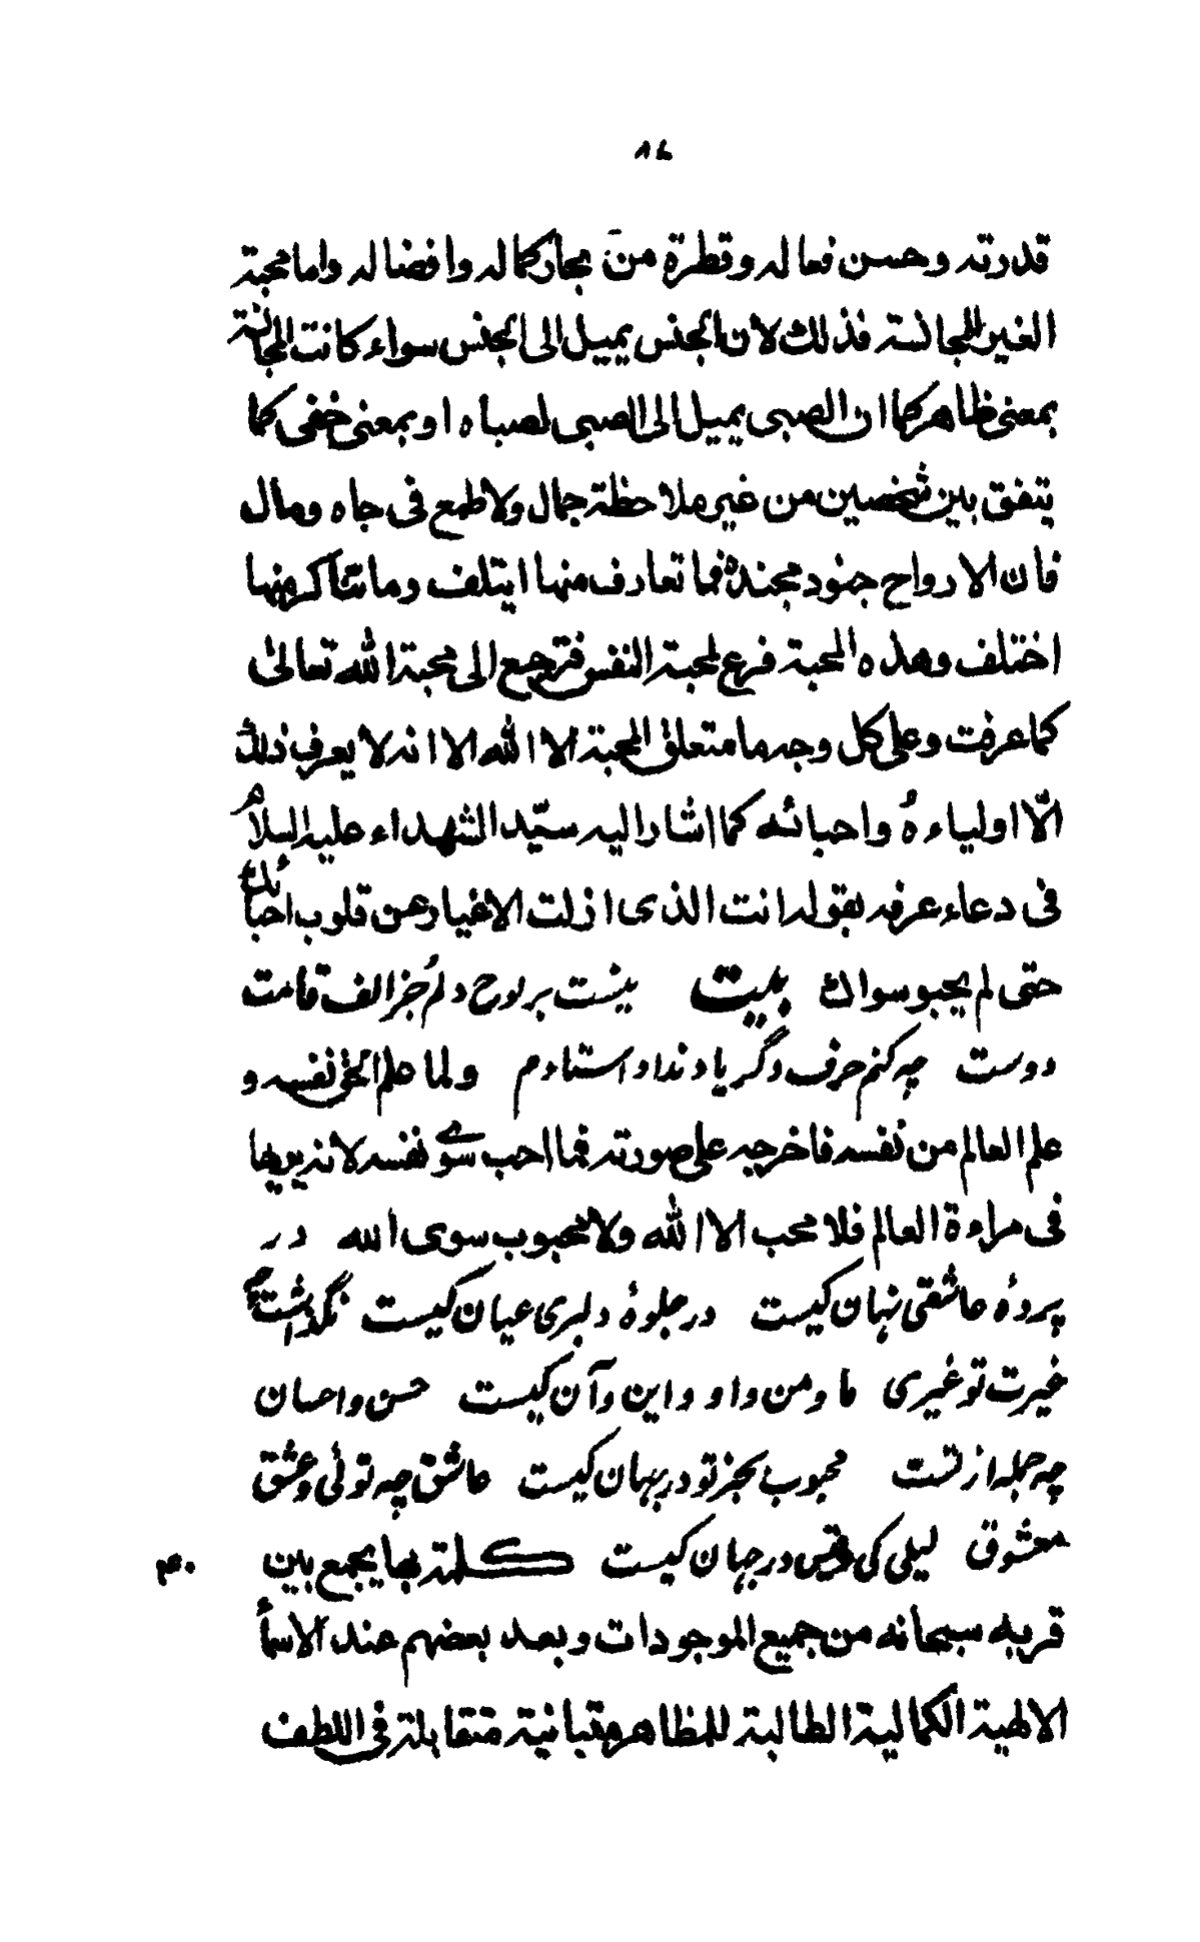 قدرته وحسن فعاله وقطرة من بحار كماله وافضاله واما محبة
الغير للمجانسة فذلك لان الجنس يميل الى الجنس سواء كانت المجانسة
بمعنى ظاهر كما ان الصبى يميل الى الصبى لصباه او بمعنى خفى كما
يتفق بين شخصين من غير ملاحظة جمال ولا طمع فى جاه ومال
فان الارواح جنود مجندة فما تعارف منها ايتلف وما تناكر منها
اختلف وهذه المحبة فرع لمحبة النفس فترجع الى محبة الله تعالى
كما عرفت وعلى كل وجه ما متعلق المحبة الا الله الا انه لا يعرف ذلك
الّا اولياءهُ واحبائه كما اشار اليه سيّد الشهداء عليه السلام
فى دعاء عرفه بقوله انت الذى ازلت الاغيار عن قلوب احبائك
حتى لم يحبو سواك بيت نيست بر لوح دلم جز الف قامت
دوست چه كنم حرف دگر ياد نداد استادم ولما علم الحق نفسه و
علم العالم من نفسه فاخرجه على صورته فما احب سوى نفسه لانه يريها
فى مراءة العالم فلا محب الا الله ولا محبوب سوى الله در
پردۀ عاشقى نهان كيست در جلوۀ دلبرى عيان كيست نگذاشت چه
غيرت تو غيرى ما ومن واو واين وآن كيست حسن واحسان
چه جمله از تست محبوب بجز تو در جهان كيست عاشق چه توئى وعشق
معشوق ليلى كى وقيس در جهان كيست كلمة بها يجمع بين
قربه سبحانه من جميع الموجودات وبعد بعضهم عند الاسمأ
الالهية الكمالية الطالبة للمظاهر متبانية متقابلة فى اللطف